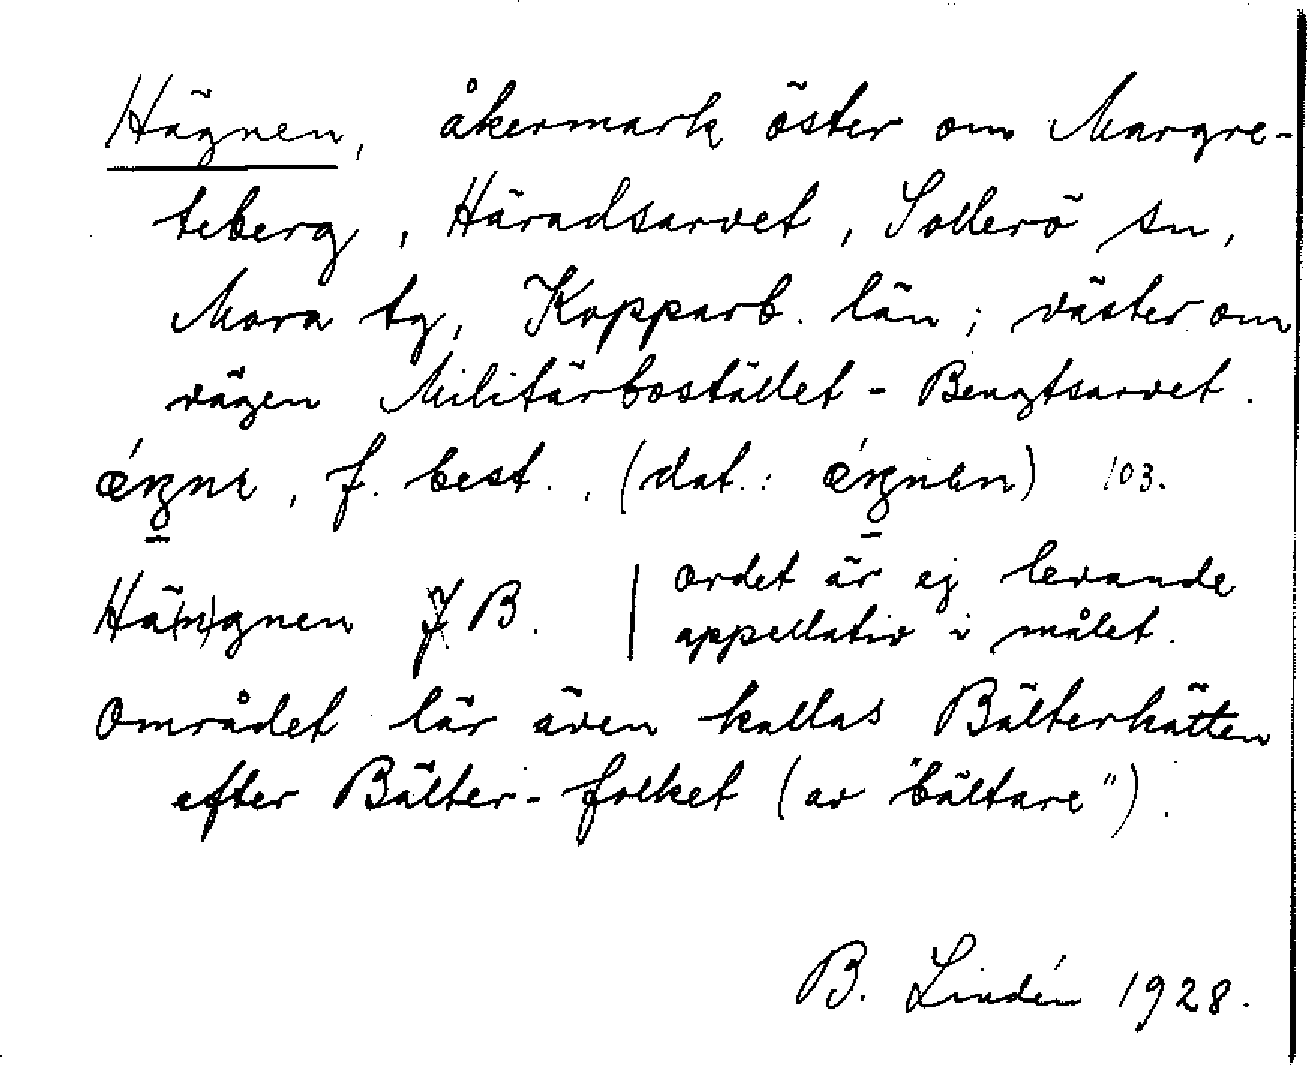 Hägnen, åkermark öster om Margre-
teberg, Häradsarvet, Sollerö sn,
Mora tg, Kopparb. län; väster om
vägen Militärbostället - Bengtsarvet.
f. best., (dat.: 103.
Hä(n)gnen J B. | ordet är ej levande
appellativ i målet.
Området lär även kallas Bälterkätten
efter Bälter-folket (av "bältare").
B. Lindén 1928.